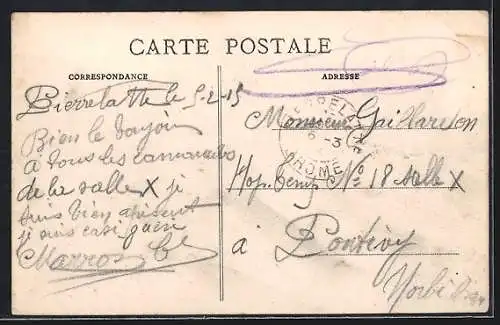 CARTE POSTALE
CORRESPONDANCE
ADRESSE
Pierrelatte le 5-2-15
Bien le bonjour
à tous les camarades
de la salle X je
suis bien à présent
je suis casi guéri
Marros
PIERRELATTE
DROME
Monsieur Gaillardon
Hop. Temp. No 18 salle X
à Pontivy
Morbihan